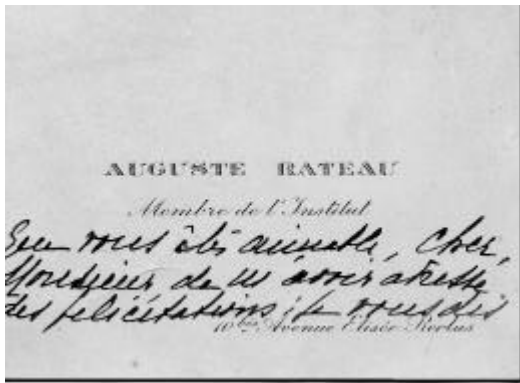 AUGUSTE RATEAU
Membre de l'Institut
Que vous êtes aimable, cher,
Monsieur de m'avoir adressé
des félicitations; je vous dis
10 bis Avenue Élisée Reclus